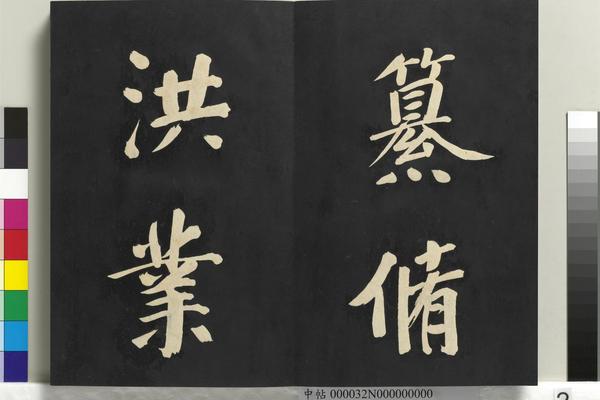 纂脩
洪業
中帖 000032N000000000